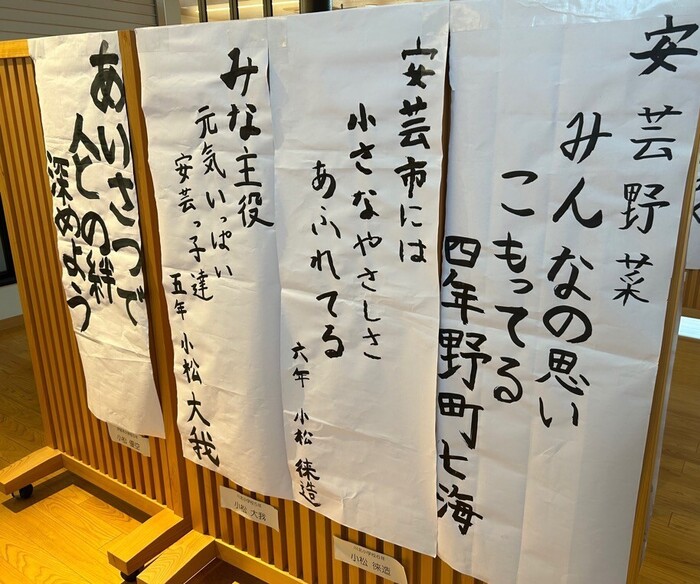 安芸野菜
みんなの思い
こもってる
四年野町七海
安芸市には
小さなやさしさ
あふれてる
六年 小松 徠造
小松 徠造
みな主役
元気いっぱい
安芸っ子達
五年 小松 大我
小松 大我
あいさつで
人との絆
深めよう